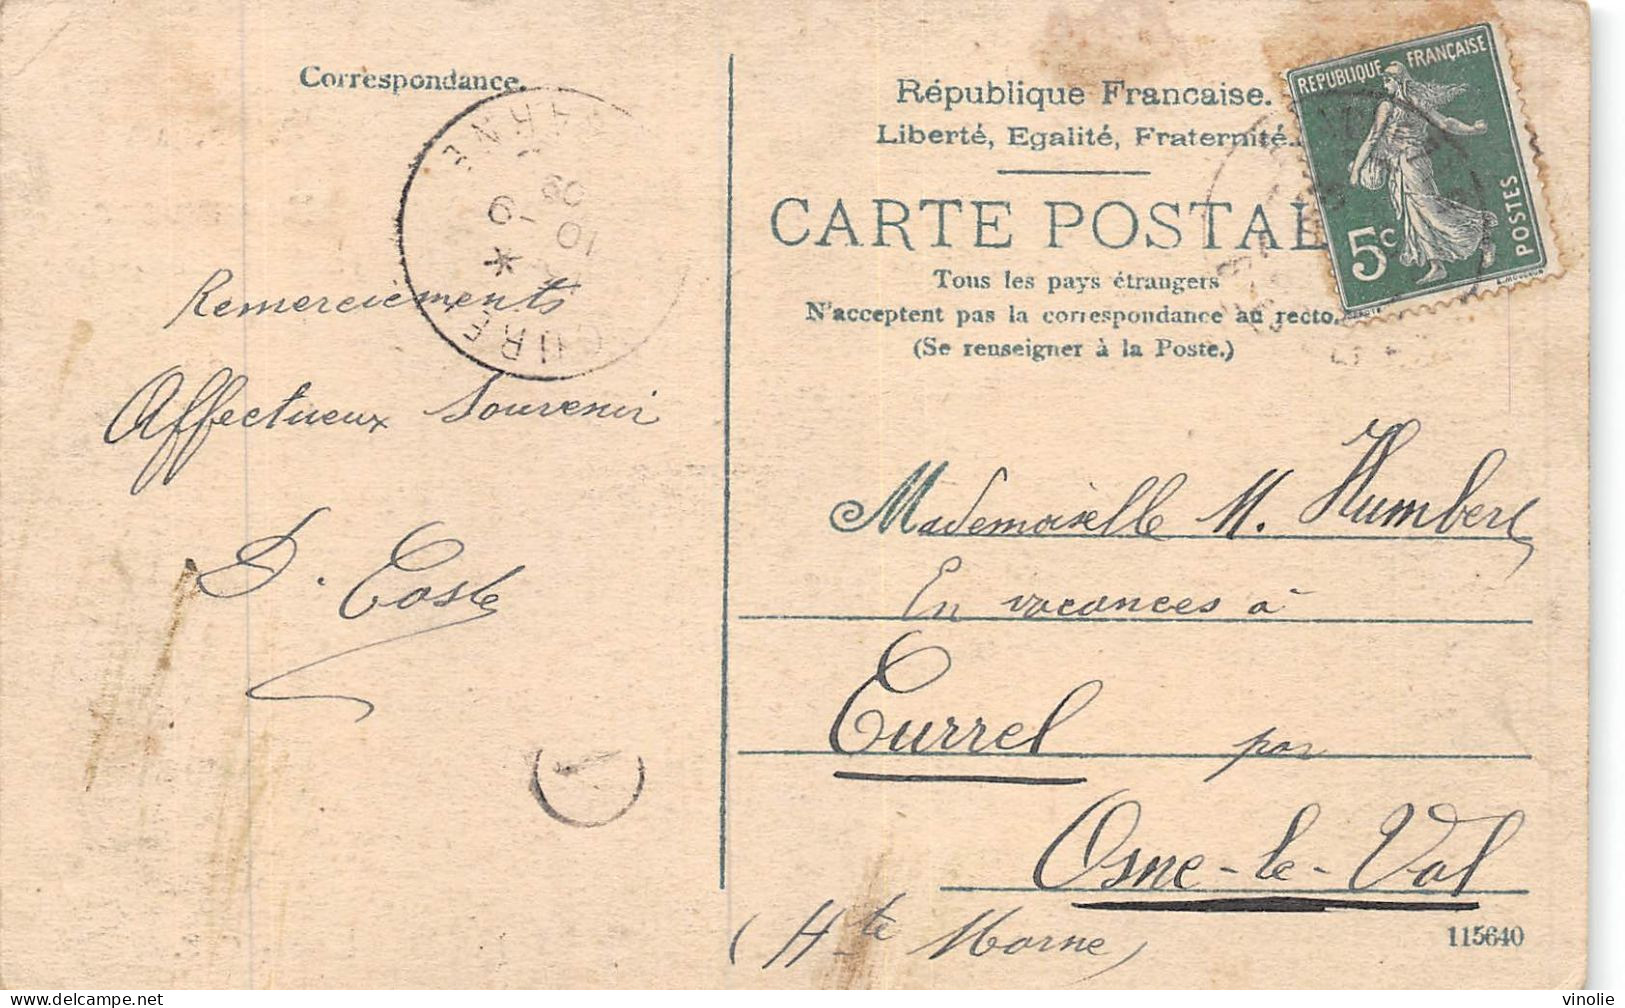 Correspondance.
Remerciements
Affectueux Souvenir
J. Coste
République Francaise.
Liberté, Egalité, Fraternité.
CARTE POSTAL
Tous les pays étrangers
N'acceptent pas la correspondance au recto.
(Se renseigner à la Poste.)
REPUBLIQUE FRANÇAISE
POSTES
5c
MARNE
10 -9
09
Mademoiselle M. Humbert
En vacances à
Curel par
Osne-le-Val
(Hte Marne)
115640
vinolie